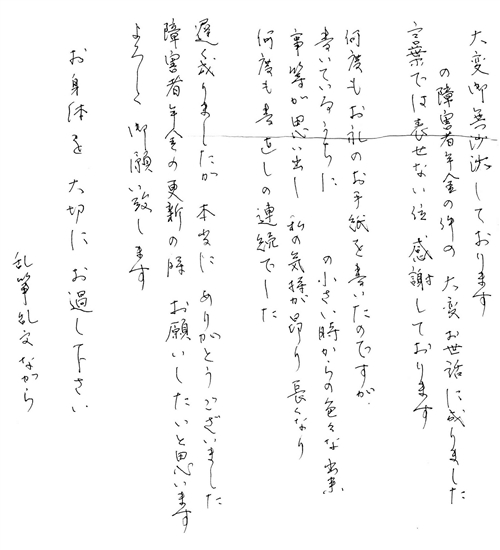 大変御無沙汰しております
の障害者年金の件の 大変お世話に成りました
言葉では表せない位 感謝しております
何度もお礼のお手紙を書いたのですが、
書いているうちに の小さい時からの色々な出来
事等が思い出し 私の気持が昂り 長くなり
何度も書き直しの連続でした
遅く成りましたが 本当に ありがとうございました
障害者年金の更新の際 お願いしたいと思います
よろしく 御願い致します
お身体を 大切に お過し下さい
乱筆乱文ながら